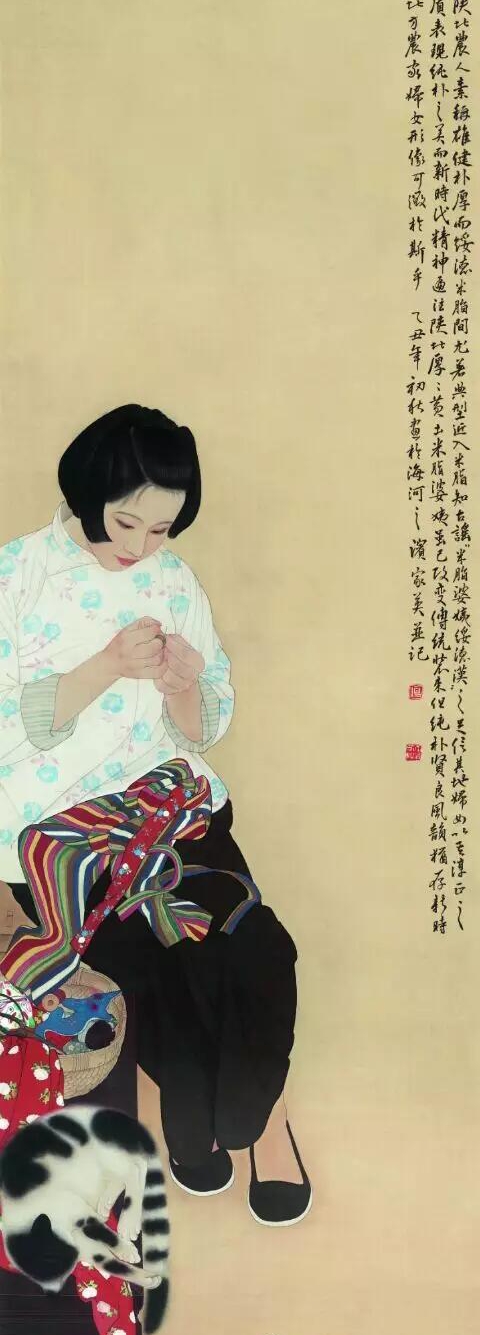 陕北農人素稱雄健朴厚而绥德米脂間尤着典型近入米脂知古謡"米脂婆姨绥德漢"之足信其地婦女以其淳正之
質表現纯朴之美而新時代精神遍注陕北厚〻黄土米脂婆姨虽已改变傳統裝束但纯朴賢良風韻猶存新時
北方農家婦女形像可徵於斯乎 乙丑年初秋画於海河之濱家英並记